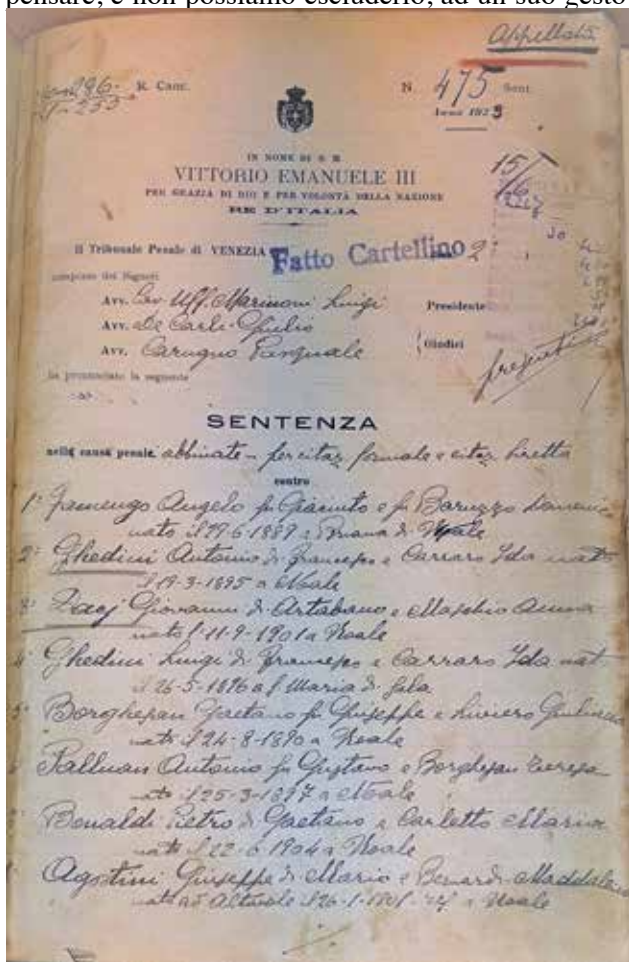 pensare, e non possiamo escluderlo, ad un suo gesto
Appellata
296. R. Canc.
N. 475 Sent.
Anno 1923
15/6
IN NOME DI S. M.
VITTORIO EMANUELE III
PER GRAZIA DI DIO E PER VOLONTÀ DELLA NAZIONE
RE D'ITALIA
Il Tribunale Penale di VENEZIA Fatto Cartellino 2
composto dei Signori
Avv. Cav. Uff. Marinoni Luigi Presidente
Avv. De Carli Giulio
Avv. Carugno Pasquale Giudici
ha pronunciato la seguente
SENTENZA
nella causa penale abbinate - per citaz. formale e citaz. diretta
contro
1º Jamengo Angelo fu Giacinto e fu Baruzzo Domenica
nato il 29-6-1889 a di Noale
2º Ghedini Antonio di Francesco e Carraro Ida nato
il 19-3-1895 a Noale
3º Giovanni di Artabano e Maschio Anna
nato l'11-9-1901 a Noale
4º Ghedini Luigi di Francesco e Carraro Ida nat
il 26-5-1896 a S. Maria di Sala
5º Borghesan Gaetano fu Giuseppe e Liviero
nato il 24-8-1890 a Noale
Antonio fu Gustavo e Borghesan Teresa
nato il 25-3-1897 a Noale
Bonaldi Pietro di Gaetano e Carletto Maria
nato il 22-6-1904 a Noale
Agostini Giuseppe di Mario e Benardi Maddalena
nato ad Altivole il 26-1- a Noale